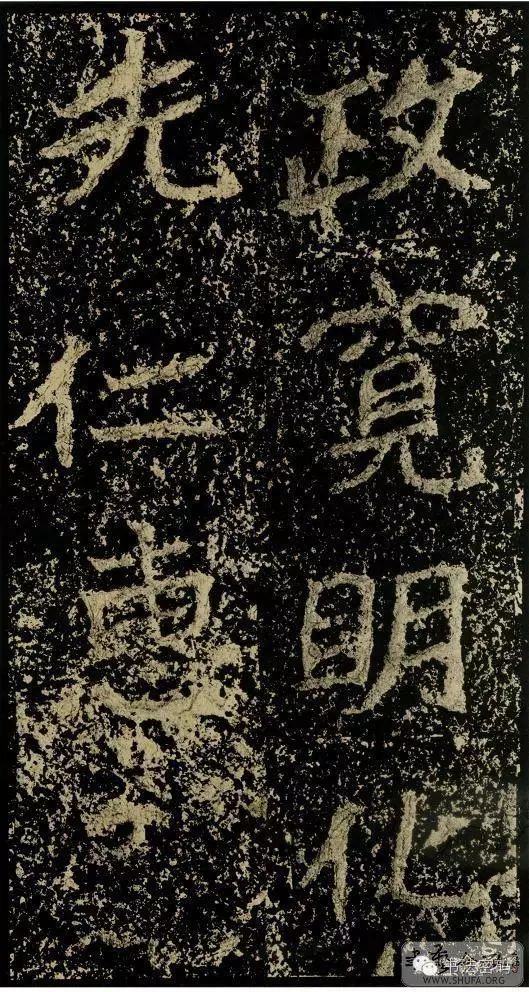 政寬明化
先仁惠
书法密码
WWW.SHUFA.ORG